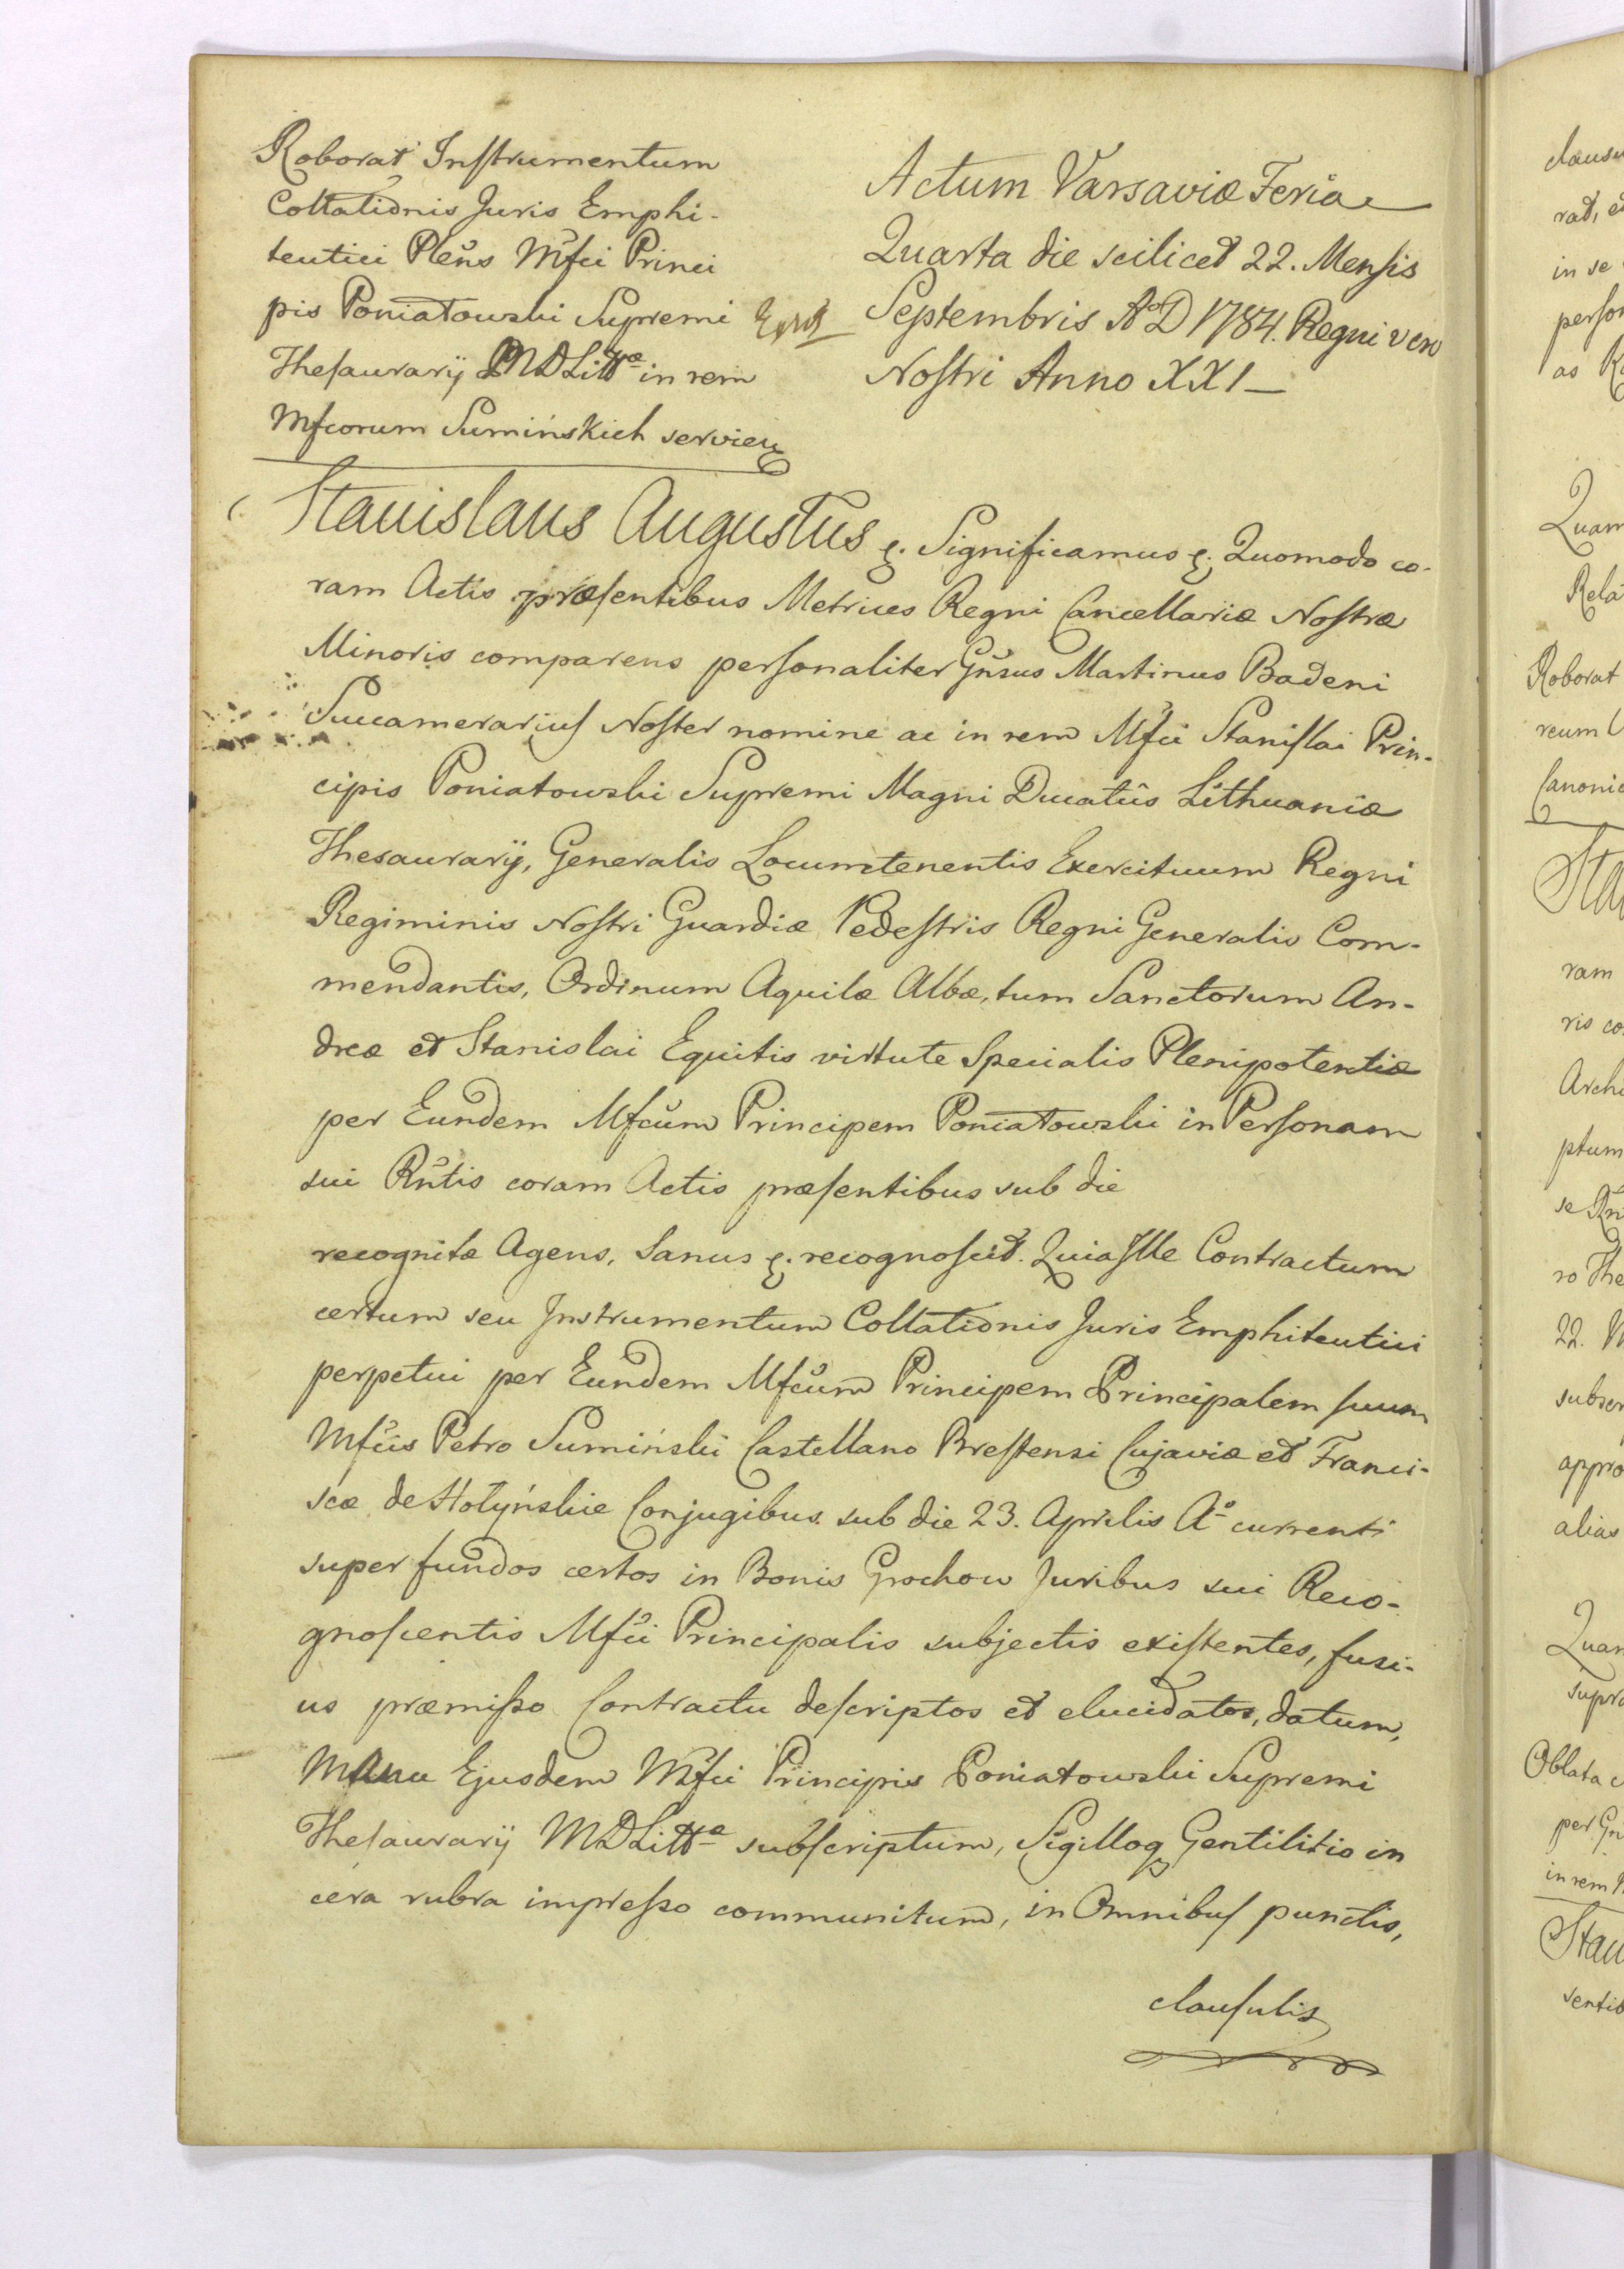 Roborat Instrumentum
Collationis Juris Emphi-
teutici Pleñs Mfci Princi
pis Poniatowski Supremi
Thesaurarij MDLittæ in rem
Mfcorum Sumińskich serviens
Actum Varsaviæ Feria
Quarta die scilicet 22. Mensis
Septembris AoD 1784. Regni vero
Nostri Anno XXI
Stanislaus Augustus &. Significamus &. Quomodo co-
ram Actis præsentibus Metrices Regni Cancellariæ Nostræ
Minoris comparens personaliter Gnsus Martinus Badeni
Succamerarius Noster nomine ac in rem Mfci Stanislai Prin-
cipis Poniatowski Supremi Magni Ducatûs Lithuaniæ
Thesaurarij, Generalis Locumtenentis Exercituum Regni
Regiminis Nostri Guardiæ Pedestris Regni Generalis Com-
mendantis, Ordinum Aquilæ Albæ, tum Sanctorum An-
dreæ et Stanislai Equitis virtute Specialis Plenipotentiæ
per Eundem Mfcum Principem Poniatowski in Personam
sui Rñtis coram Actis præsentibus sub die
recognitæ Agens, Sanus &. recognoscit. Quia Ille Contractum
certum seu Instrumentum Collationis Juris Emphiteutici
perpetui per Eundem Mfcum Principem Principalem suum
Mfcis Petro Sumiński Castellano Brestensi Cujaviæ et Franci-
scæ de Hołyńskie Conjugibus sub die 23. Aprilis Ao currenti
super fundos certos in Bonis Grochow Juribus sui Reco-
gnoscentis Mfci Principalis subjectis existentes, fusi-
us præmisso Contractu descriptos et elucidatos, datum,
Manu Ejusdem Mfci Principis Poniatowski Supremi
Thesaurarij MDLitta subscriptum, Sigilloq Gentilitio in
cera rubra impresso communitum, in Omnibus punctis,
clausulis
clausu
rat, e
in se
person
as
Quam
Rela
Roborat
reum
Canonic
Sta
ram
ris co
Archi
ptum
se Rñ
ro The
22. M
subscr
appro
alias
Quam
supra
Oblata
per Gn
in rem
Stan
sentib